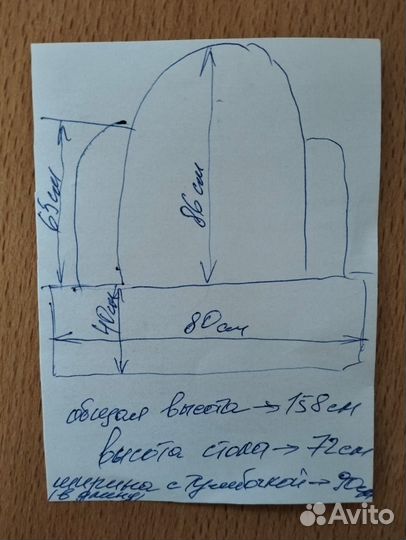 65 см
86 см
40 см
80 см
общая высота → 158 см
высота стола → 72 см
ширина с тумбочкой → 90 см
(в длину)
Avito